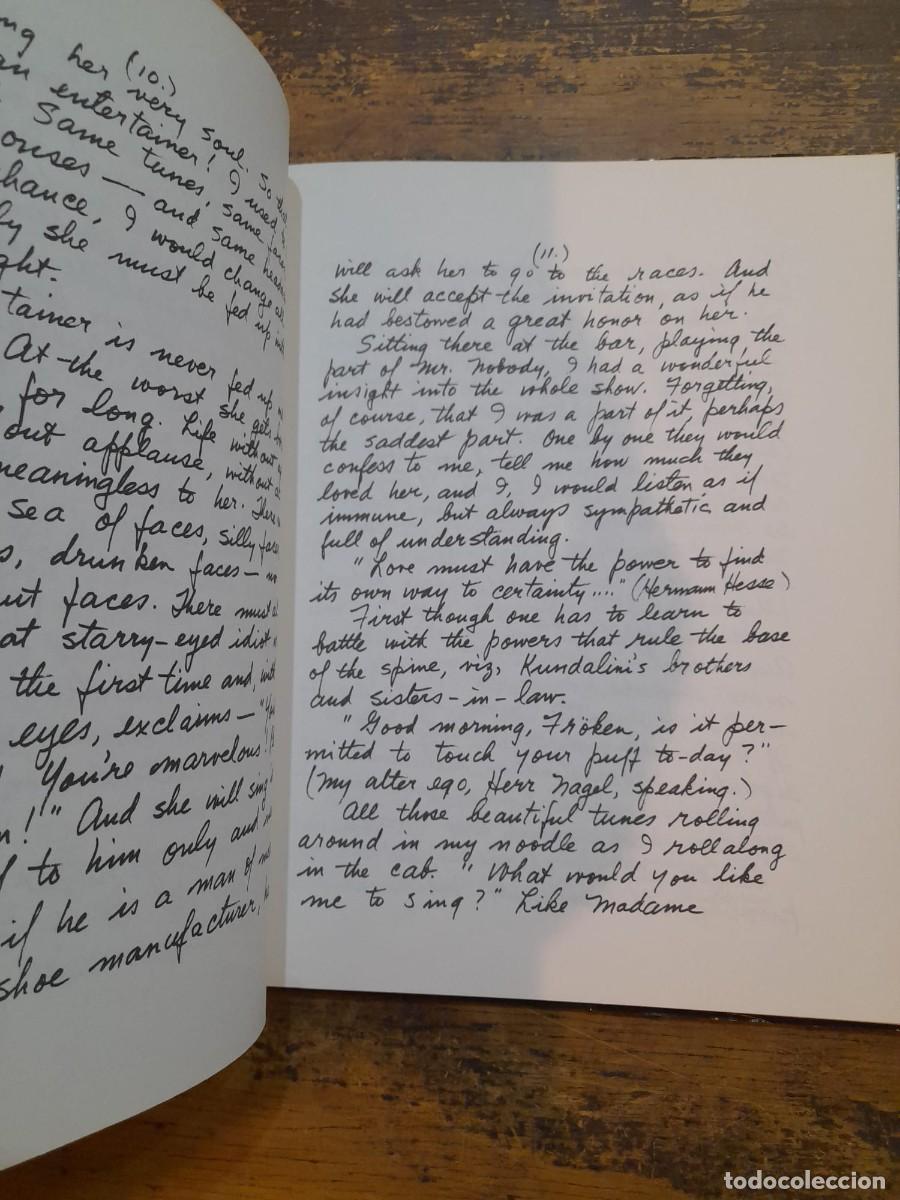 ng her (10.) very soul. So tha
an entertainer! I used
Same tunes, same
ouses — and same
chance, I would change
by she must be fed up
ght.
tainer is never fed up
At the worst she gets
, for long. Life without
out applause, without
meaningless to her. There
sea of faces, silly faces
s, drunken faces —
ut faces. There must
at starry-eyed idiot
the first time and, with
eyes, exclaims — "You
You're marvelous!
n!" And she will sing
to him only and
if he is a man of
shoe manufacturer,
(11.)
will ask her to go to the races. And
she will accept the invitation, as if he
had bestowed a great honor on her.
Sitting there at the bar, playing the
part of Mr. Nobody, I had a wonderful
insight into the whole show. Forgetting,
of course, that I was a part of it, perhaps
the saddest part. One by one they would
confess to me, tell me how much they
loved her, and I, I would listen as if
immune, but always sympathetic and
full of understanding.
"Love must have the power to find
its own way to certainty...." (Hermann Hesse)
First though one has to learn to
battle with the powers that rule the base
of the spine, viz, Kundalini's brothers
and sisters-in-law.
"Good morning, Fröken, is it per-
mitted to touch your puff to-day?"
(My alter ego, Herr Nagel, speaking.)
All those beautiful tunes rolling
around in my noodle as I roll along
in the cab. "What would you like
me to sing?" Like Madame
todocoleccion